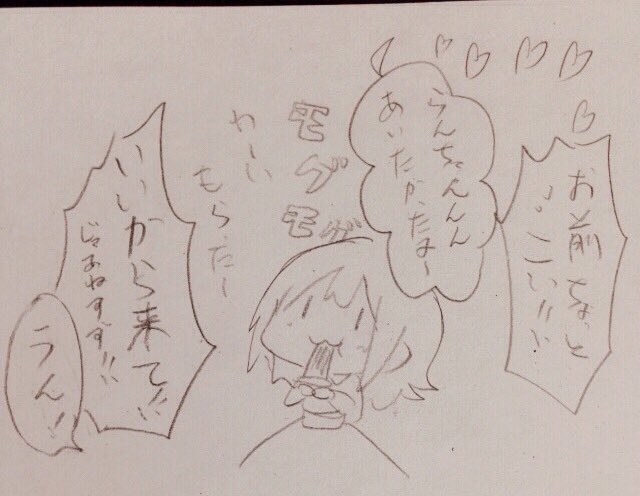 お前ちょっと
こい!!
らんちゃんんん
あいたかったよー
モグモグ
わーい
もらったー
いいから来て!!
じゃあねすず!!
うん!!